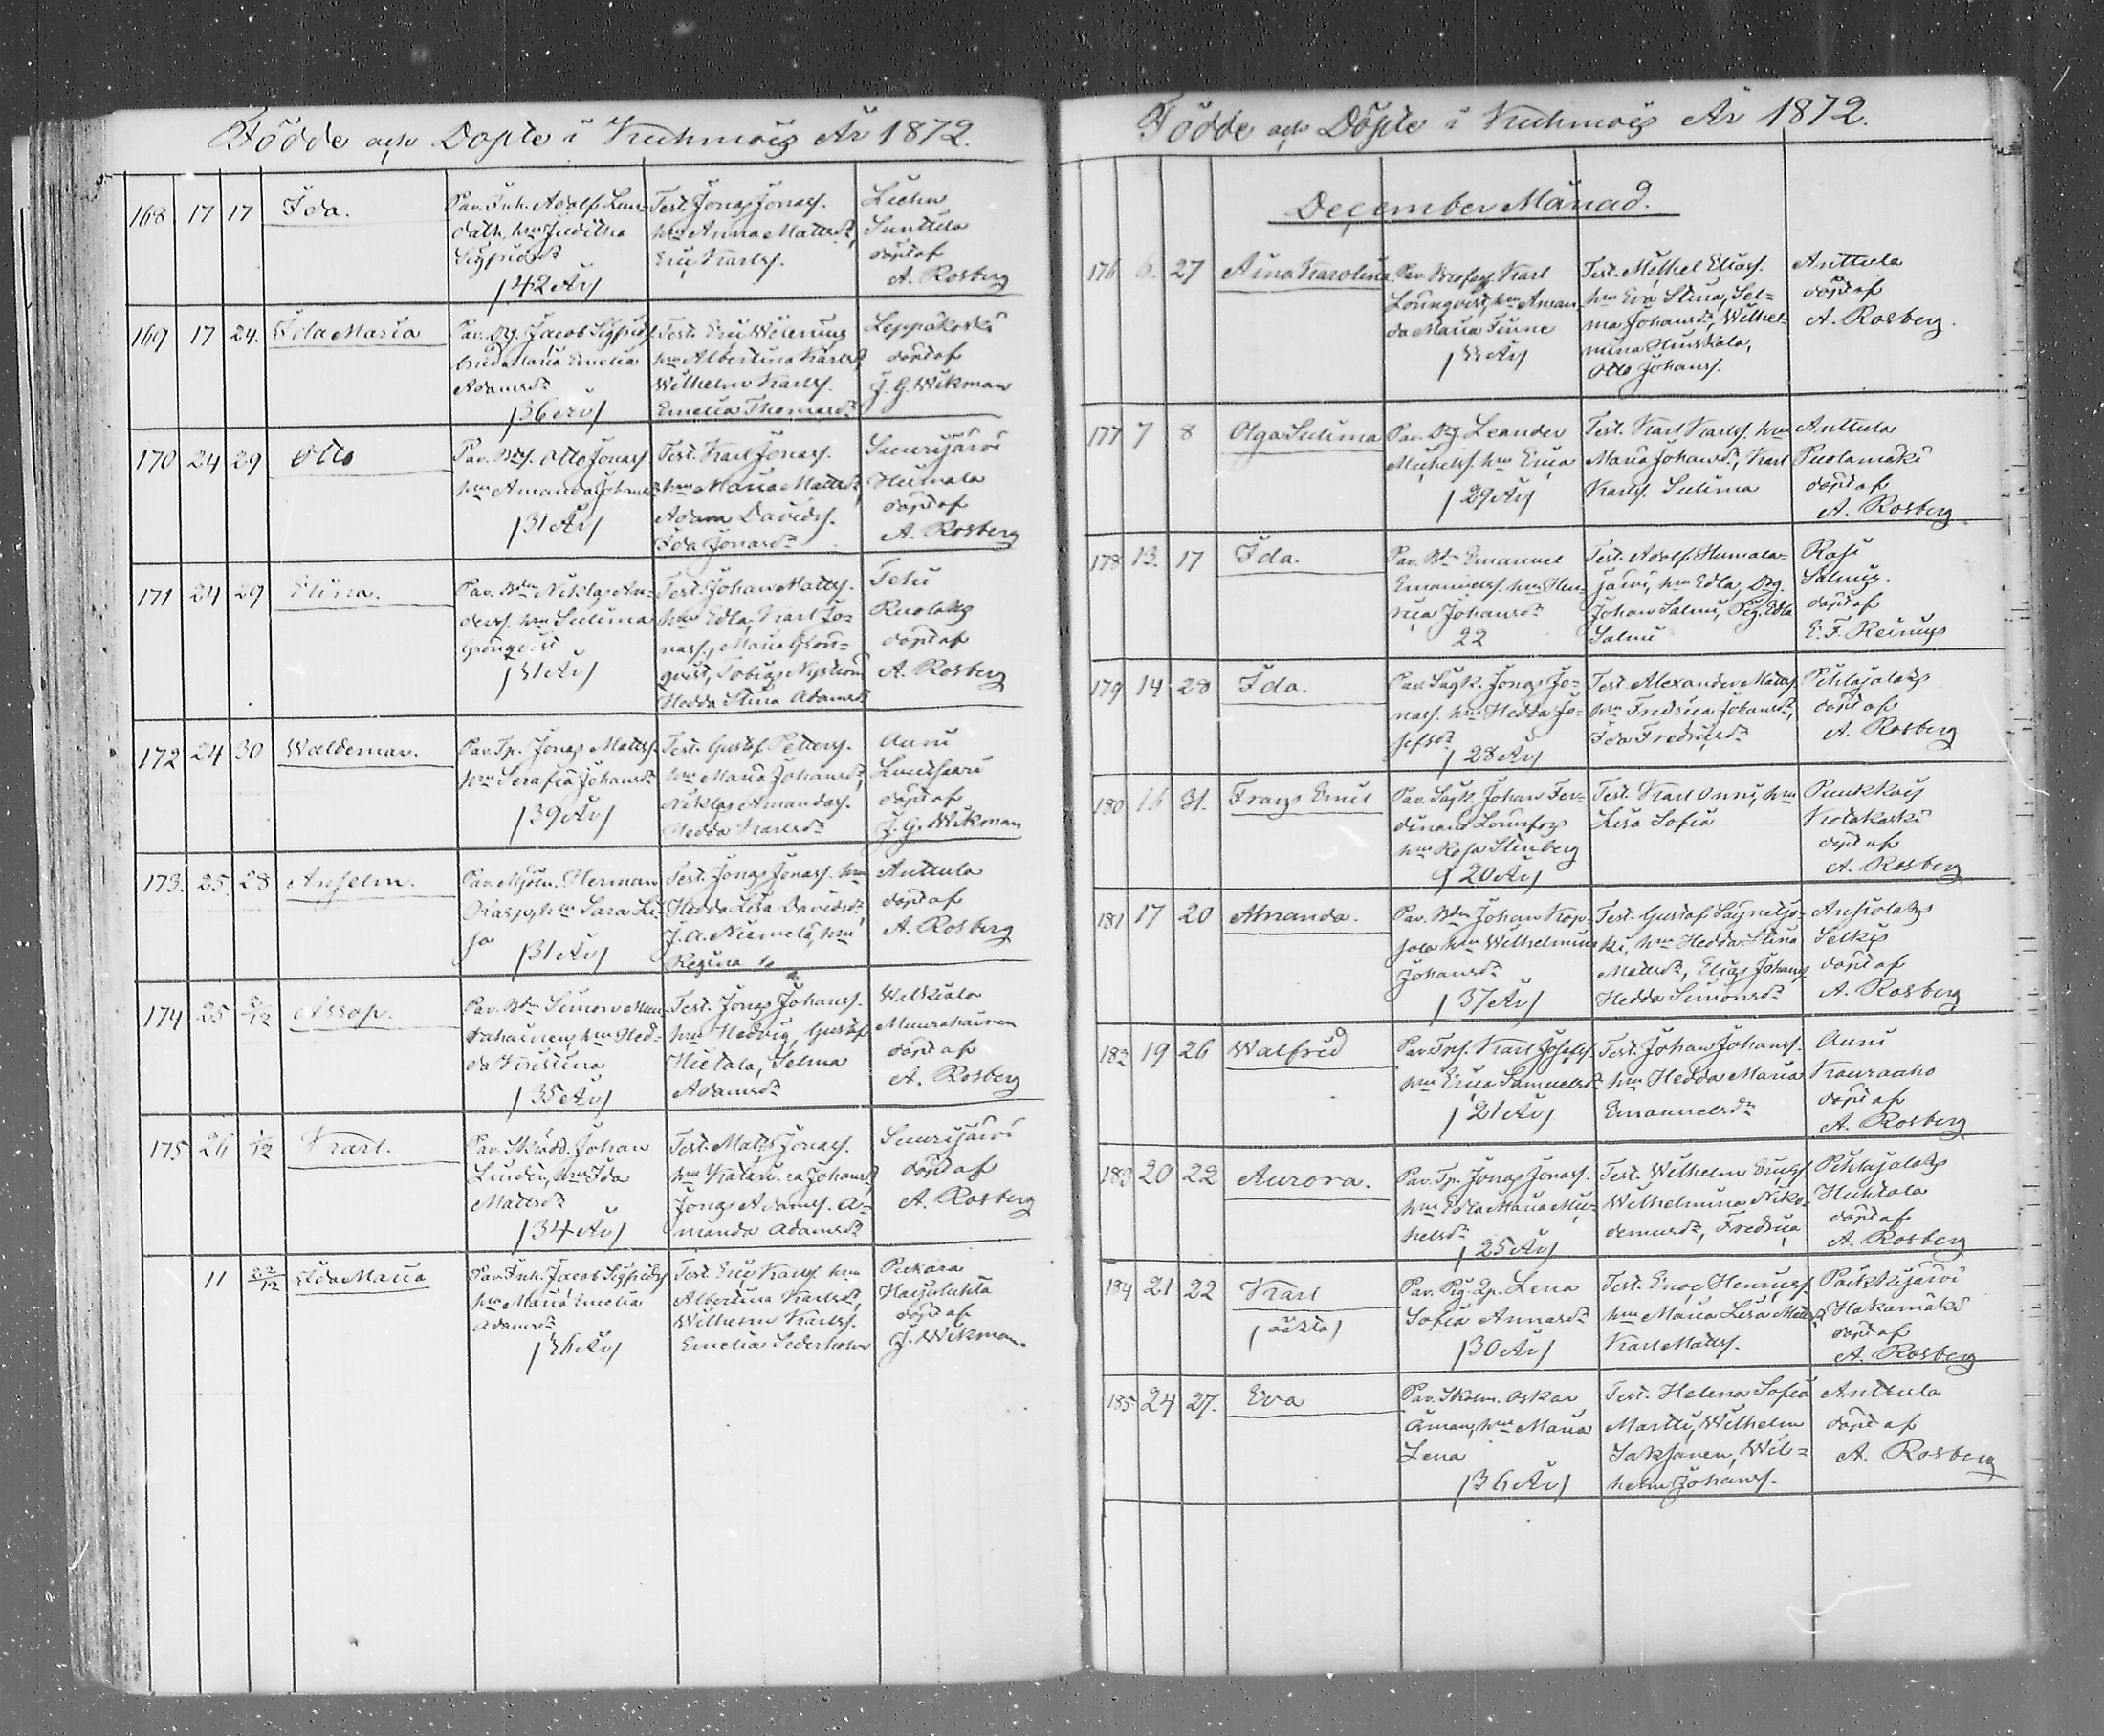 Födde och Döpte i Kuhmois År 1872.
168 17 17 Ida.
Par. Inh. Adolf Lun-
dath, hu Juditha
Sigfridsdr
/42 År/
Test. Jonas Jonass.
hu Anna Mattsdr,
Eric Karlss.
Liehu
Sunttila
döpt af
A. Rosberg
169 17 24. Ida Maria
Par. Dg. Jacob Sigfrids.
Maria Emelia
Adamsdr
/36 År/
Test. Eric
hu Albertina Karlsdr,
Wilhelm Karlss.
Emelia Thomasdr
Leppäkoski
döpt af
J. G. Wikman
170 24 29 Otto
Par. Otto Jonass.
hu Amanda Johansdr
/31 År/
Test. Karl Jonass.
hu Maria Mattsdr,
Adam Davidss.
Ida Jonasdr
Suurijärvi
Heimala
döpt af
A. Rosberg
171 24 29 Stina.
Par. Bdn Niklas An-
derss. hu Sulima
Grönqvist
/31 År/
Test. Johan Mattss.
hu Edla, Karl Jo-
nass., Maria Grön-
qvist, Tobias Nyström
Hedda Stina Adamsdr
Tehi
Ruolaks
döpt af
A. Rosberg
172 24 30 Waldemar.
Par. Tp. Jonas Mattss.
hu Serafia Johansdr
/39 År/
Test. Gustaf Petterss.
hu Maria Johansdr,
Niklas Amandas.
Hedda Karlsdr
Auni
döpt af
J. G. Wikman
173. 25. 28 Anshelm.
Par. Mjöln. Herman
hu Sara Li-
sa /31 År/
Test. Jonas Jonass. hu
Hedda Lisa Davidsdr,
J. A. Niemelä, hu
Regina
Anttula
döpt af
A. Rosberg
174 25 2/12 Assap.
Par. Bdn Simon Muu-
rahainen, hu Hed-
da Kristina
/35 År/
Test. Jonas Johanss.
hu Hedvig, Gustaf
Hietala, Selma
Adamsdr
Wälkiala
Muurahainen
döpt af
A. Rosberg
175 26 1/12 Karl.
Par. Skrädd. Johan
Lindén, hu Ida
Mattsdr
/34 År/
Test. Matts Jonass.
hu Johansdr,
Jonas Adams. A-
manda Adamsdr
Suurijärvi
döpt af
A. Rosberg
11 22/12 Ida Maria
Par. Inh. Jacob Sigfrids.
hu Maria Emelia
Adamsdr
/36 År/
Test. Eric Karlss. hu
Albertina Karlsdr,
Wilhelm Karlss.
Emelia Sederholm
Pukara
Harjulahta
döpt af
J. Wikman.
Födde och Döpte i Kuhmois År 1872.
December Månad.
176 6. 27 Aina Karolina
Par. Karl
Lönnqvist, hu Aman-
da Maria Finne
Test. Mikkel Eliass.
hu Eva Stina, Sel-
ma Johansdr, Wilhel-
mina
Otto Johanss.
Anttula
döpt af
A. Rosberg.
177 7 8 Olga Sulima
Par. Dg. Leander
Michelss. hu Erica
/29 År/
Test. Karl Karlss. hu
Maria Johansdr, Karl
Karlss. Sulima
Anttula
Puolamäki
döpt af
A. Rosberg
178 13. 17 Ida.
Par. Bdn Emanuel
Emanuelss. hu Hen-
rica Johansdr
22
Test. Adolf Humala-
järvi, hu Edla, Dg.
Johan Salmi, Pig. Edla
Salmi
Rasi
Salmis.
döpt af
E. F. Reinius
179 14 28 Ida.
Par. Sagk. Jonas Jo-
nass. hu Hedda Jo-
sefsdr
/28 År/
Test. Alexander Mattss.
hu Fredrica Johansdr,
Ida Fredricsdr
Pihlajalaks
döpt af
A. Rosberg
180 16 31. Frans Emil
Par. Sagk. Johan Fer-
dinand Lönnfors
hu Rosa Stenberg
/20 År/
Test. Karl Onni, hu
Lisa Sofia
Puukkois
Kotakoski
döpt af
A. Rosberg
181 17 20 Amanda.
Par. Bdn Johan Kop-
sala hu Wilhelmina
Johansdr
/37 År/
Test. Gustaf Säynätjo-
ki, hu Hedda Stina
Mattsdr, Elias Johanss.
Hedda Simonsdr
Ansiolaks
Selkis
döpt af
A. Rosberg
182 19 26 Walfrid
Par. Karl Josefss.
hu Erica Samuelsdr
/21 År/
Test. Johan Johanss.
hu Hedda Maria
Emanuelsdr
Auni
Kauraaho
döpt af
A. Rosberg
183 20 22 Aurora.
Par. Tp. Jonas Jonass.
hu Edla Maria Mic-
helsdr
/25 År/
Test. Wilhelm Ericss.
Wilhelmina Niko-
demusdr, Fredrica
Pihlajalaks
Huhtala
döpt af
A. Rosberg
184 21 22 Karl
/oäkta/
Par. Pig. Lena
Sofia Annasdr
/30 År/
Test. Enoc Henricss.
hu Maria Lisa Mattsdr
Karl Mattss.
Päikkijärvi
Hakamäki
döpt af
A. Rosberg
185 24 27. Eva
Par. Skolm. Oskar
Åman, hu Maria
Lena
/36 År/
Test. Helena Sofia
Martti, Wilhelm
Saksanen, Wil-
helm Johanss.
Anttula
döpt af
A. Rosberg